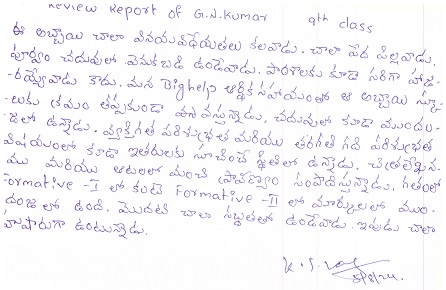 Review Report of G.N.Kumar 9th class
ఈ అబ్బాయి చాలా వినయవిధేయతలు కలవాడు. చాలా పేద పిల్లవాడు.
పూర్వం చదువులో వెనుకబడి ఉండేవాడు. పాఠశాలకు కూడా సరిగా హాజ-
-రయ్యేవాడు కాదు. మన Bighelp ఆర్థిక సహాయంతో ఆ అబ్బాయి స్కూ-
-లుకు క్రమం తప్పకుండా వస్తున్నాడు. చదువులో కూడా ముందం-
-జలో ఉన్నాడు. వ్యక్తిగత పరిశుభ్రత మరియు తరగతి గది పరిశుభ్రత
విషయంలో కూడా ఇతరులకు సూచించే స్థితిలో ఉన్నాడు. చిత్రలేఖన-
ము మరియు ఆటలలో మంచి ప్రావీణ్యం సంపాదిస్తున్నాడు. గతంలో
Formative - I లో కంటె Formative - II లో మార్కులలో ముం-
దంజలో ఉంది. మొదటి చాలా స్తబ్ధతతో ఉండేవాడు. ఇపుడు చాలా
హుషారుగా ఉంటున్నాడు.